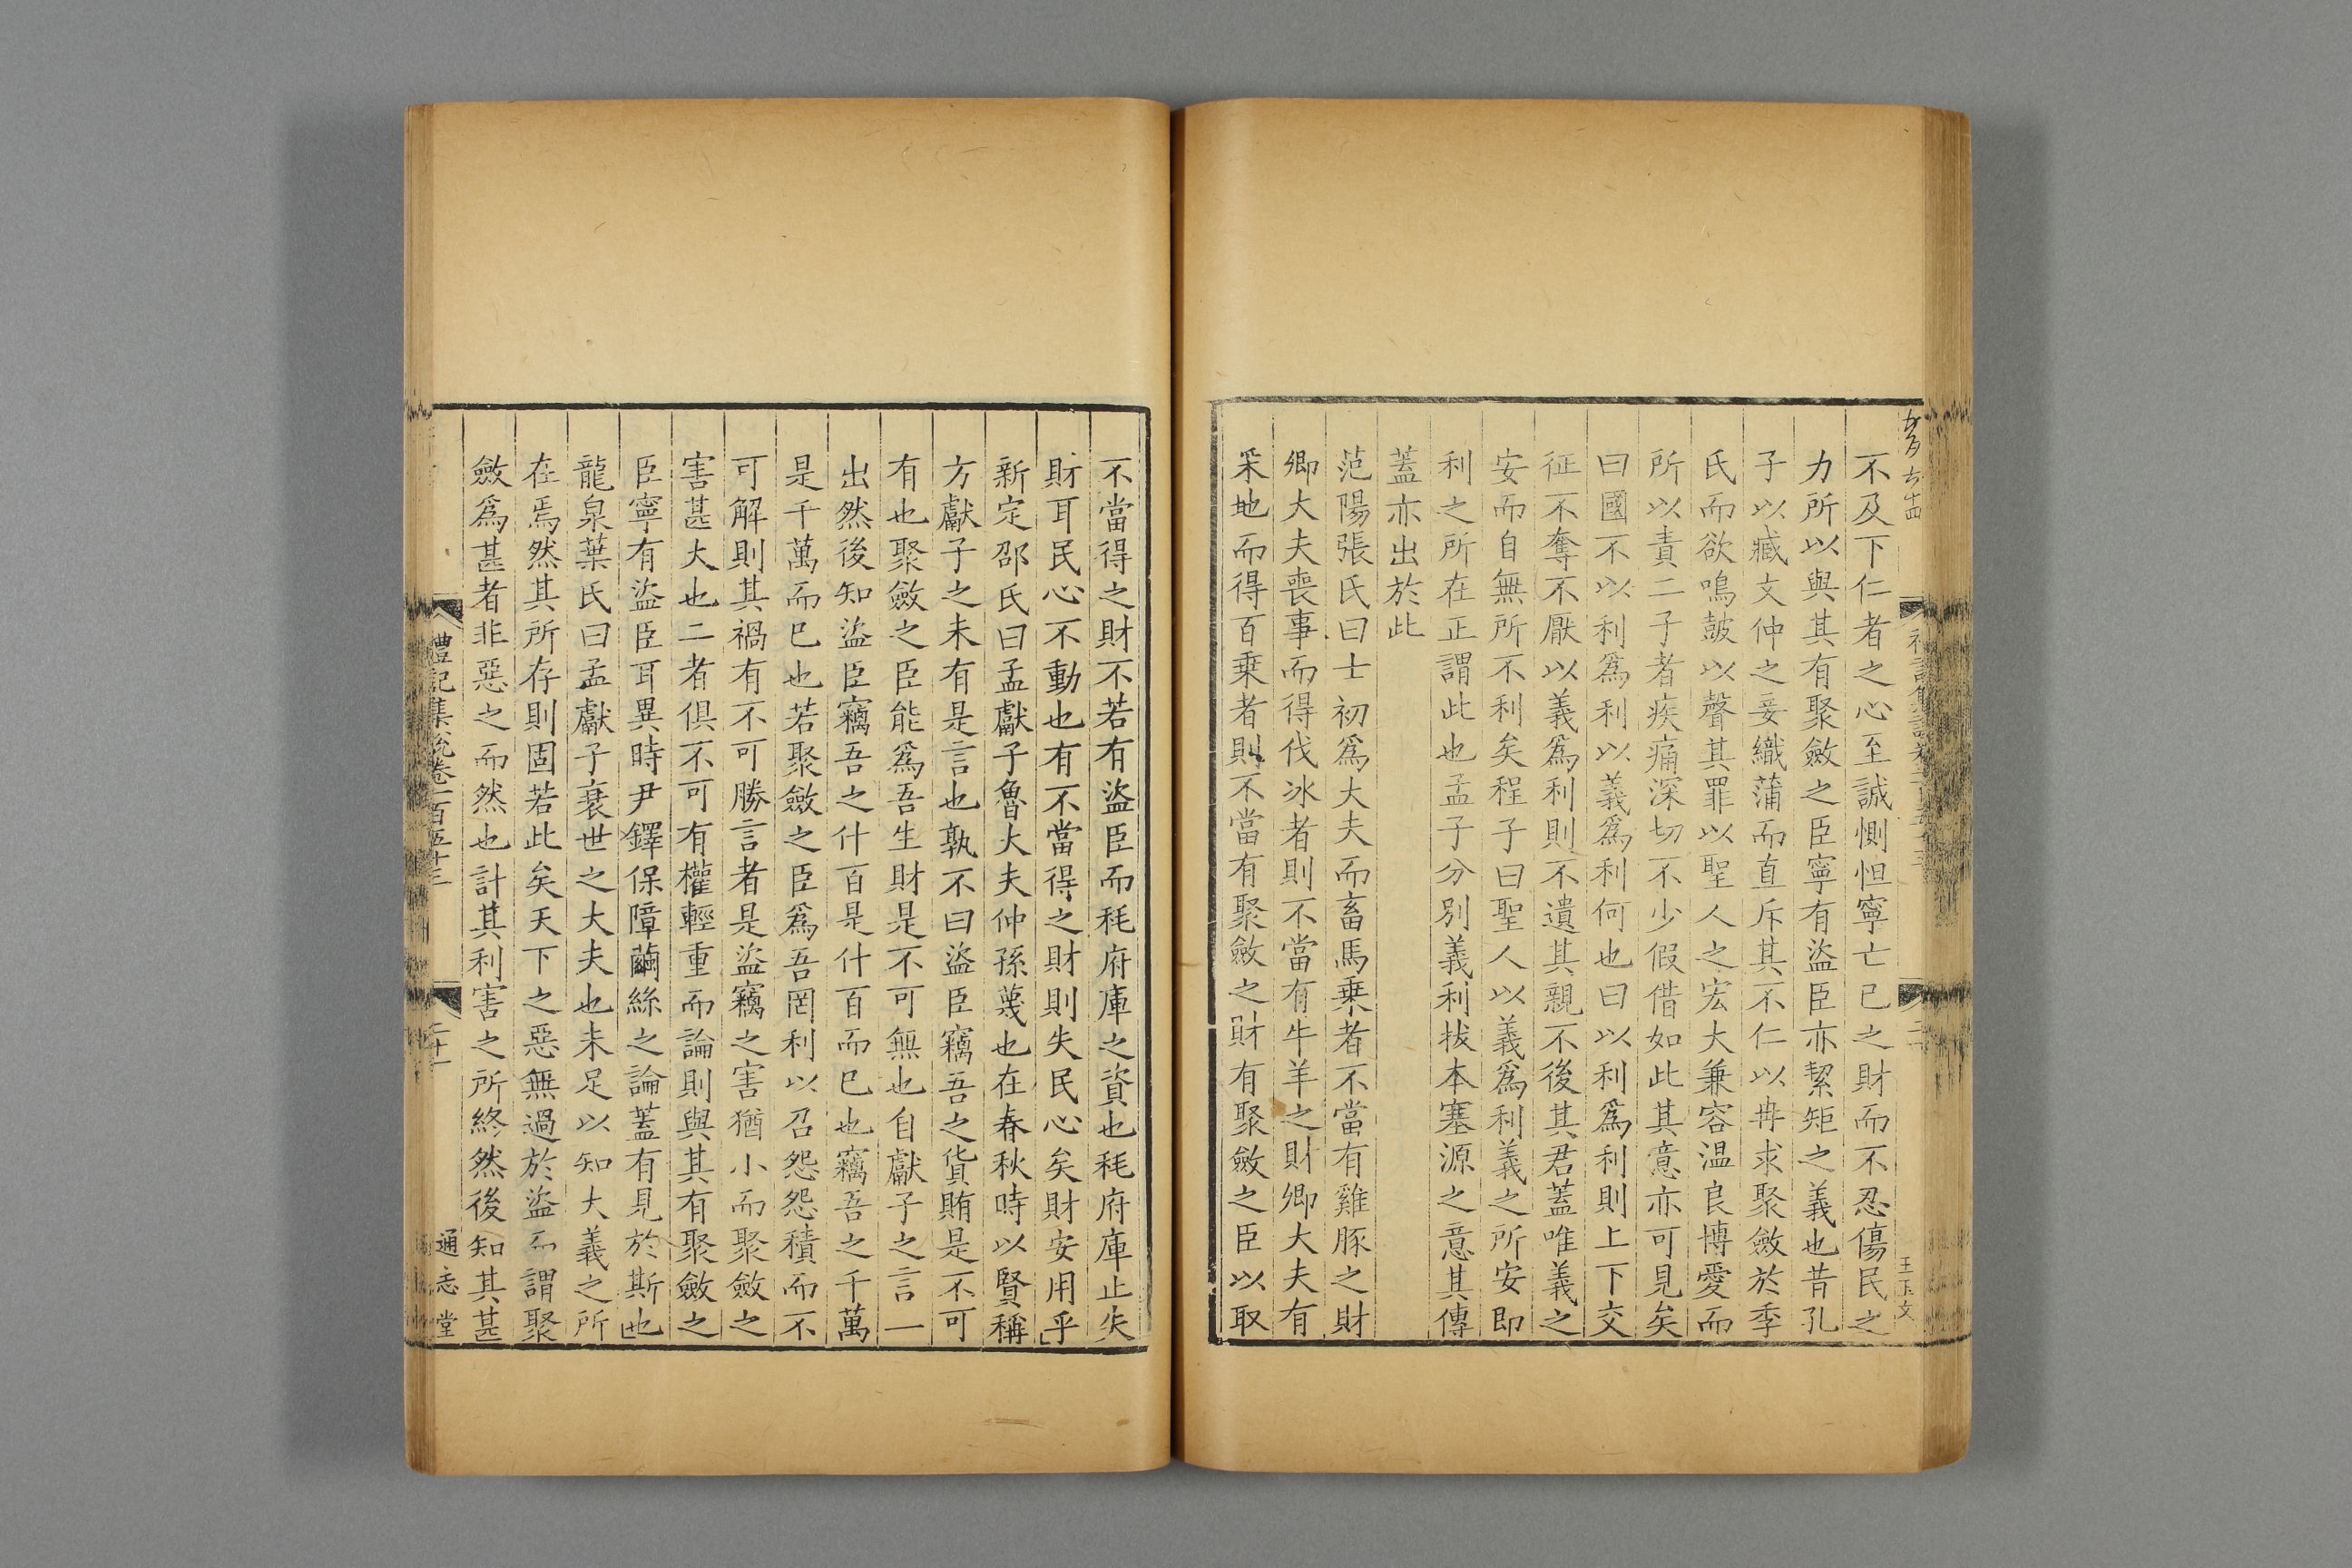 不及下仁者之心至誠惻怛寧亡己之財而不忍傷民之
力所以與其有聚斂之臣寧有盜臣亦絜矩之義也昔孔
子以臧文仲之妾織蒲而直斥其不仁以冉求聚斂於季
氏而欲鳴鼓以聲其罪以聖人之宏大兼容温良博愛而
所以責二子者疾痛深切不少假借如此其意亦可見矣
曰國不以利爲利以義爲利何也曰以利爲利則上下交
征不奪不厭以義爲利則不遺其親不後其君蓋唯義之
安而自無所不利矣程子曰聖人以義爲利義之所安即
利之所在正謂此也孟子分别義利拔本塞源之意其傳
蓋亦出於此
范陽張氏曰士初爲大夫而畜馬乗者不當有雞豚之財
卿大夫喪事而得伐冰者則不當有牛羊之財卿大夫有
采地而得百乗者則不當有聚斂之財有聚斂之臣以取
不當得之財不若有盜臣而秏府庫之資也秏府庫止失
財耳民心不動也有不當得之財則失民心矣財安用乎
新定邵氏曰孟獻子魯大夫仲孫蔑也在春秋時以賢稱
方獻子之未有是言也孰不曰盜臣竊吾之貨賄是不可
有也聚斂之臣能爲吾生財是不可無也自獻子之言一
出然後知盜臣竊吾之什百是什百而已也竊吾之千萬
是千萬而已也若聚斂之臣爲吾罔利以召怨怨積而不
可解則其禍有不可勝言者是盜竊之害猶小而聚斂之
害甚大也二者俱不可有權輕重而論則與其有聚斂之
臣寧有盜臣耳異時尹鐸保障繭絲之論蓋有見於斯也
龍泉葉氏曰孟獻子衰世之大夫也未足以知大義之所
在焉然其所存則固若此矣天下之惡無過於盜而謂聚
斂爲甚者非惡之而然也計其利害之所終然後知其甚
禮記集說卷一百五十三
二十一
通志堂
王玉文